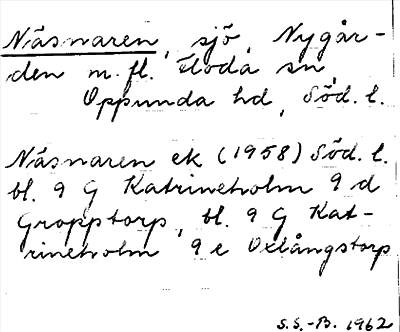 Näsnaren, sjö, Nygår-
den m.fl. Floda sn,
Oppunda hd, Söd. l.
Näsnaren ek (1958) Söd. l.
bl. 9 G Katrineholm 9 d
Gropptorp, bl. 9 G Kat-
rineholm 9 e Oxlångstorp
S.S.-B. 1962